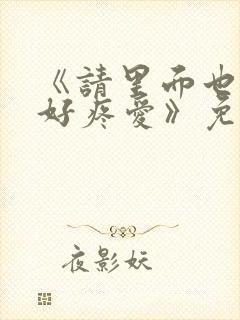 《請里而也
好疼愛》免
夜影妖